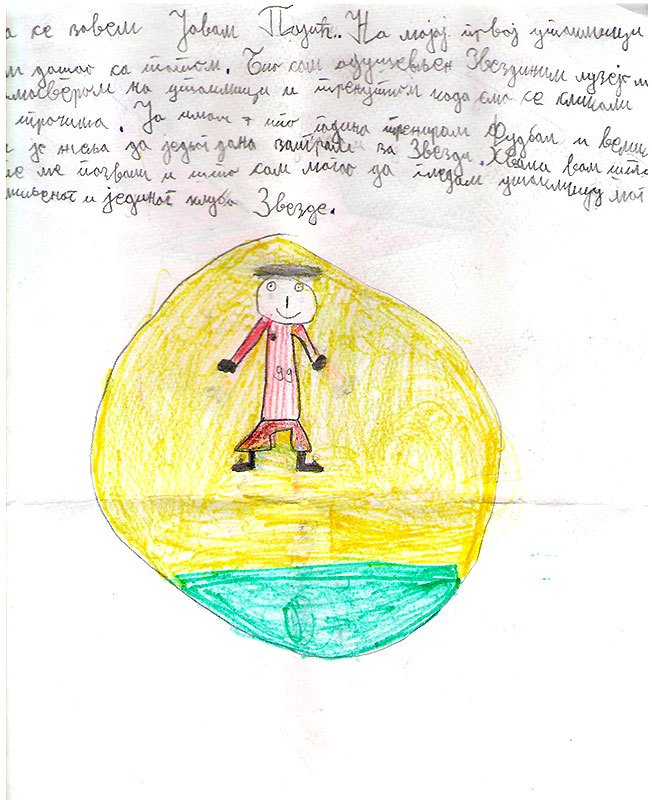 а се зовем Јован На мојој првој утакмици
м дошао са татом. Био сам одушевљен Звездиним музејом
мосвером на утакмици и тренутком када смо се сликали
трочима. Ја имам 7 ипо година тренирам фудбал и вели
и је жеља да једног дана заиграм за Звезду. Хвала вам што
ме позвали и што сам могао да гледам утакмицу мог
миљеног и јединог клуба Звезде.
99